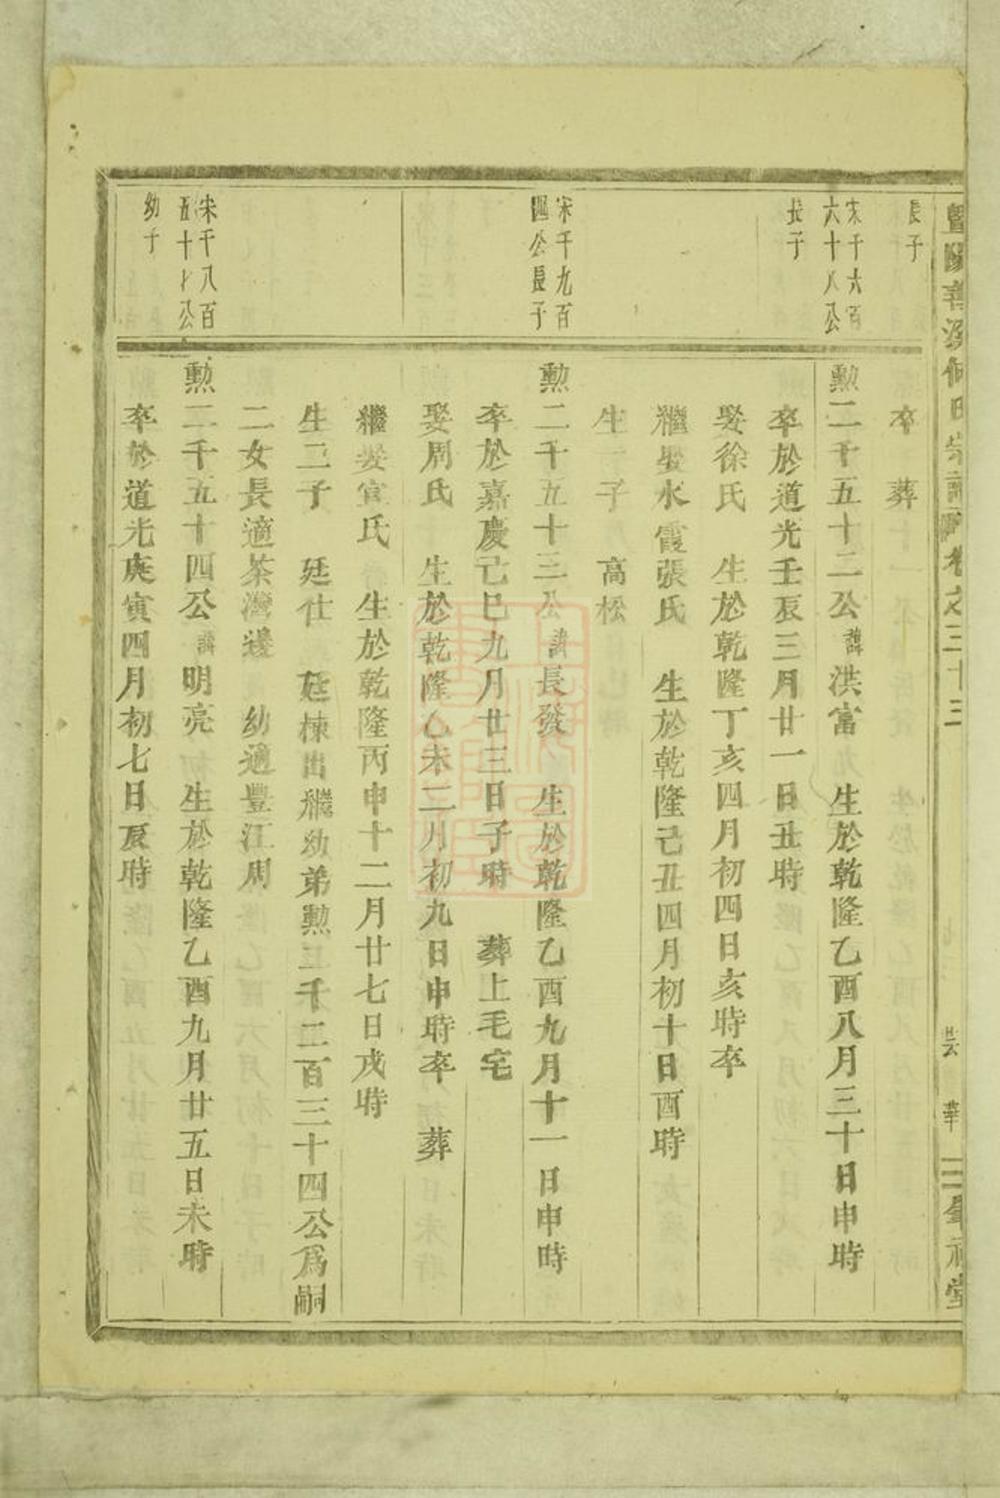 長子
卒　葬
宋千六百
六十八公
長子
勲二千五十二公諱洪富　生於乾隆乙酉八月三十日申時
卒於道光壬辰三月廿一日丑時
娶徐氏　生於乾隆丁亥四月初四日亥時卒
繼娶水霞張氏　生於乾隆己丑四月初十日酉時
生一子　高松
宋千九百
四公長子
勲二千五十三公諱長發　生於乾隆乙酉九月十一日申時
卒於嘉慶己巳九月廿三日子時　葬上毛宅
娶周氏　生於乾隆乙未二月初九日申時卒　葬
繼娶宣氏　生於乾隆丙申十二月廿七日戌時
生二子　廷仕　廷棟出繼幼弟勲三千二百三十四公爲嗣
二女長適茶灣邊　幼適豐江周
宋千八百
五十七公
幼子
勲二千五十四公諱明亮　生於乾隆乙酉九月廿五日未時
卒於道光庚寅四月初七日辰時